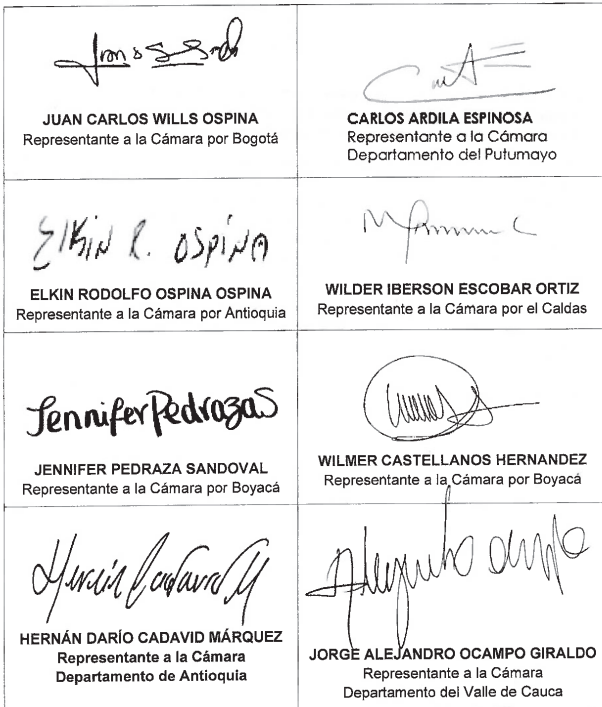 JUAN CARLOS WILLS OSPINA
Representante a la Cámara por Bogotá
CARLOS ARDILA ESPINOSA
Representante a la Cámara
Departamento del Putumayo
Elkin R. OSPINA
ELKIN RODOLFO OSPINA OSPINA
Representante a la Cámara por Antioquia
WILDER IBERSON ESCOBAR ORTIZ
Representante a la Cámara por el Caldas
JenniferPedrazaS
JENNIFER PEDRAZA SANDOVAL
Representante a la Cámara por Boyacá
WILMER CASTELLANOS HERNANDEZ
Representante a la Cámara por Boyacá
Hernán Cadavid M
HERNÁN DARÍO CADAVID MÁRQUEZ
Representante a la Cámara
Departamento de Antioquia
Alejandro Ocampo
JORGE ALEJANDRO OCAMPO GIRALDO
Representante a la Cámara
Departamento del Valle de Cauca